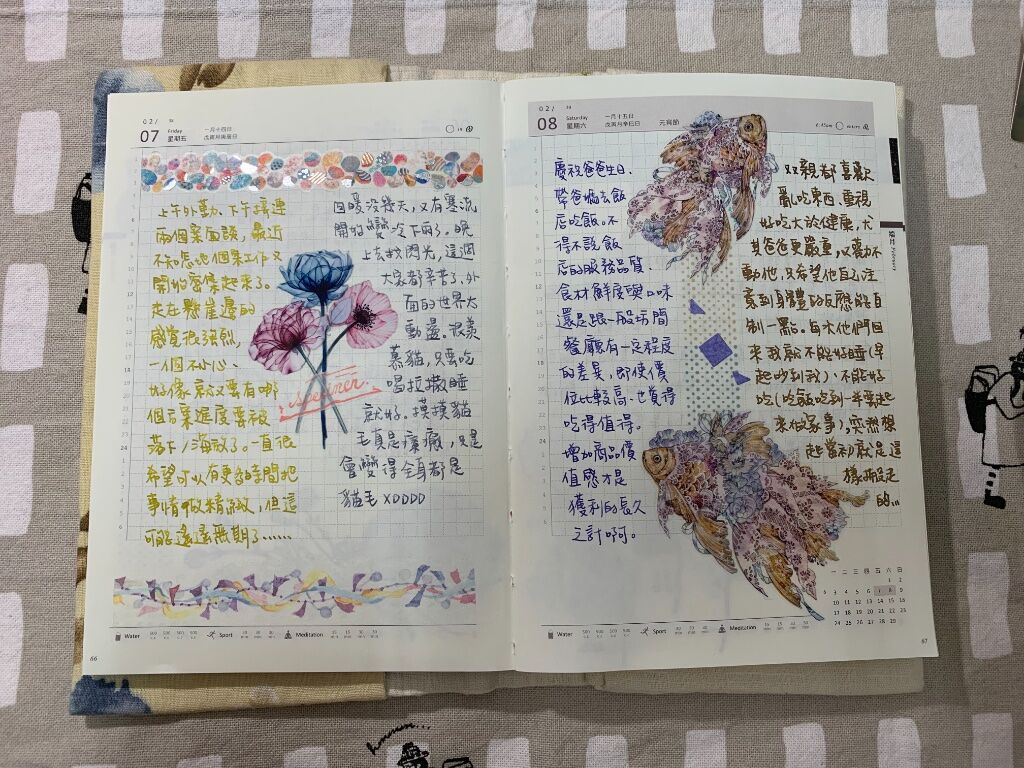 02/
07
Friday
星期五
一月十四日
戊寅月庚辰日
上午外勤、下午接連
兩個案面談,最近
不知怎地個案工作又
開始密集起來了。
走在懸崖邊的
感覺很強烈,
一個不小心、
好像就又要有哪
個方案進度要被
落下/海放了。一直很
希望可以有更多的時間把
事情做精緻,但這
可能遙遙無期了……
回暖沒幾天,又有寒流
開始變冷下雨了。晚
上去救閃光,這週
大家都辛苦了、外
面的世界太
動盪。很羨
慕貓,只要吃
喝拉撒睡
就好。摸摸貓
毛真是療癒,只是
會變得全身都是
貓毛 XDDDD
specimen
Water
500 500 500 500
Sport
Meditation
66
02/
08
Saturday
星期六
一月十五日
戊寅月辛巳日
元宵節
慶祝爸爸生日、
帶爸媽去飯
店吃飯。不
得不說飯
店的服務品質、
食材鮮度與口味
還是跟一般坊間
餐廳有一定程度
的差異,即使價
位比較高、也覺得
吃得值得。
增加商品價
值感才是
獲利的長久
之計啊。
雙親都喜歡
亂吃東西、重視
好吃大於健康,尤
其爸爸更嚴重,又勸不
動他,只希望他自己注
意到身體的反應能自
制一點。每次他們回
來我就不能好睡(早
起吵到我)、不能好
吃(吃飯吃到一半要起
來做家事),突然想
起當初就是這
樣
的…
一 二 三 四 五 六 日
1 2
3 4 5 6 7 8 9
10 11 12 13 14 15 16
17 18 19 20 21 22 23
24 25 26 27 28
Water
Sport
Meditation
67
hmmm...